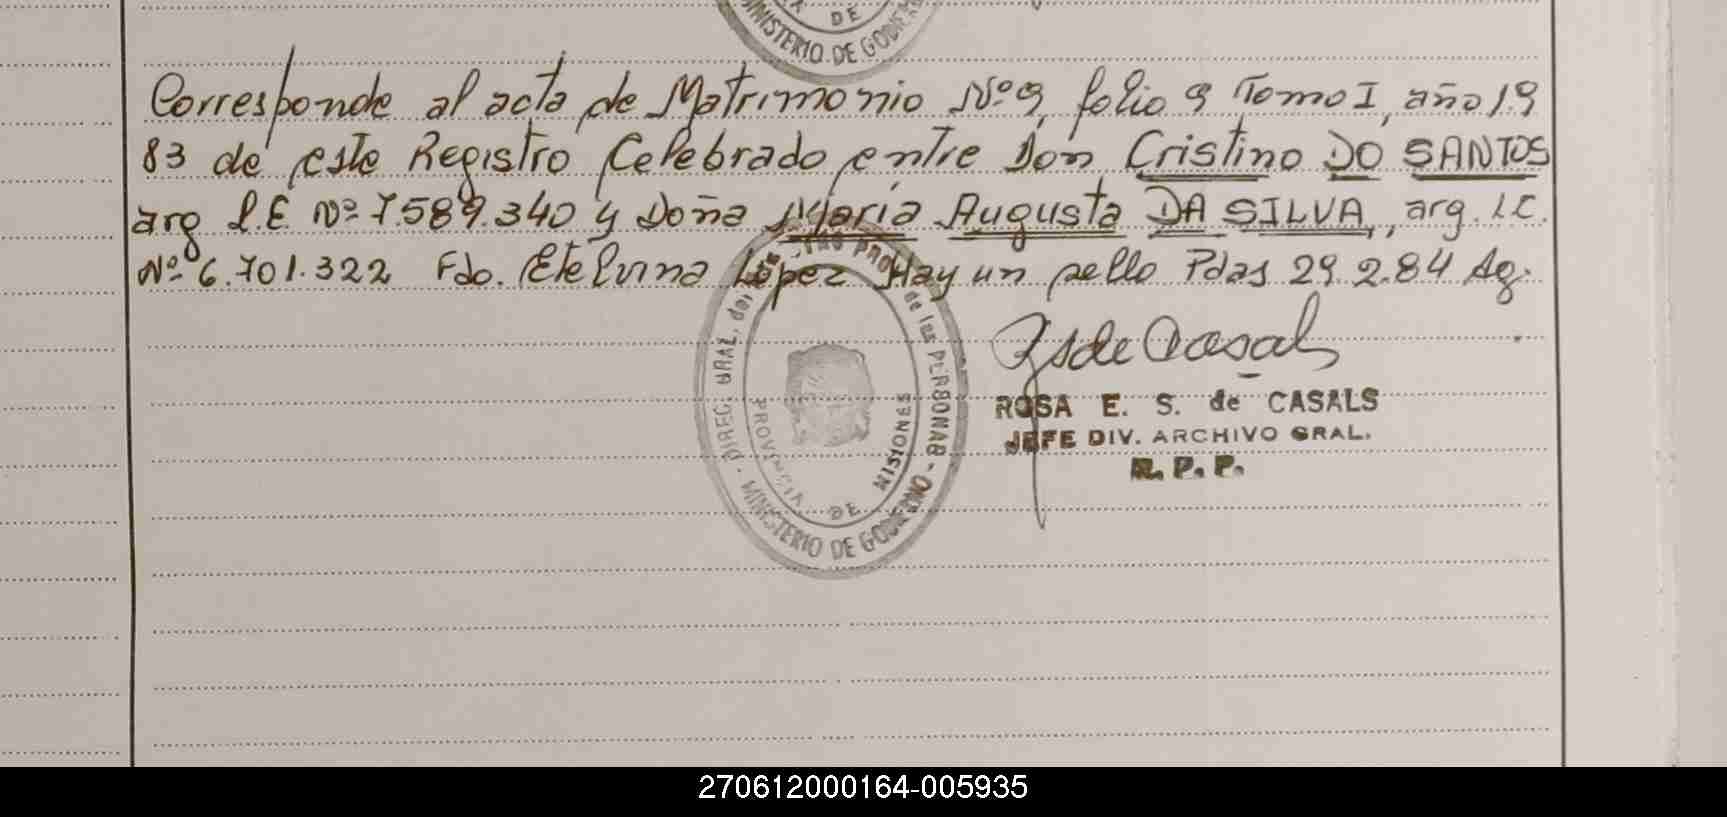 DE
MINISTERIO DE GOBIERNO
Corresponde al acta de Matrimonio Nº 9, folio 9 Tomo I, año 19
83 de este Registro Celebrado entre Don Cristino DO SANTOS
arg L.E Nº 7.589.340 y Doña María Augusta DA SILVA, arg. L.C.
Nº 6.701.322 Fdo. Etelvina López Hay un sello Pdas 29.2.84 Ag.
DIREC. GRAL. del PROV. de las PERSONAS - MINISTERIO DE GOBIERNO
PROVINCIA DE MISIONES
RsdeCasals
ROSA E. S. de CASALS
JEFE DIV. ARCHIVO GRAL.
R. P. P.
270612000164-005935